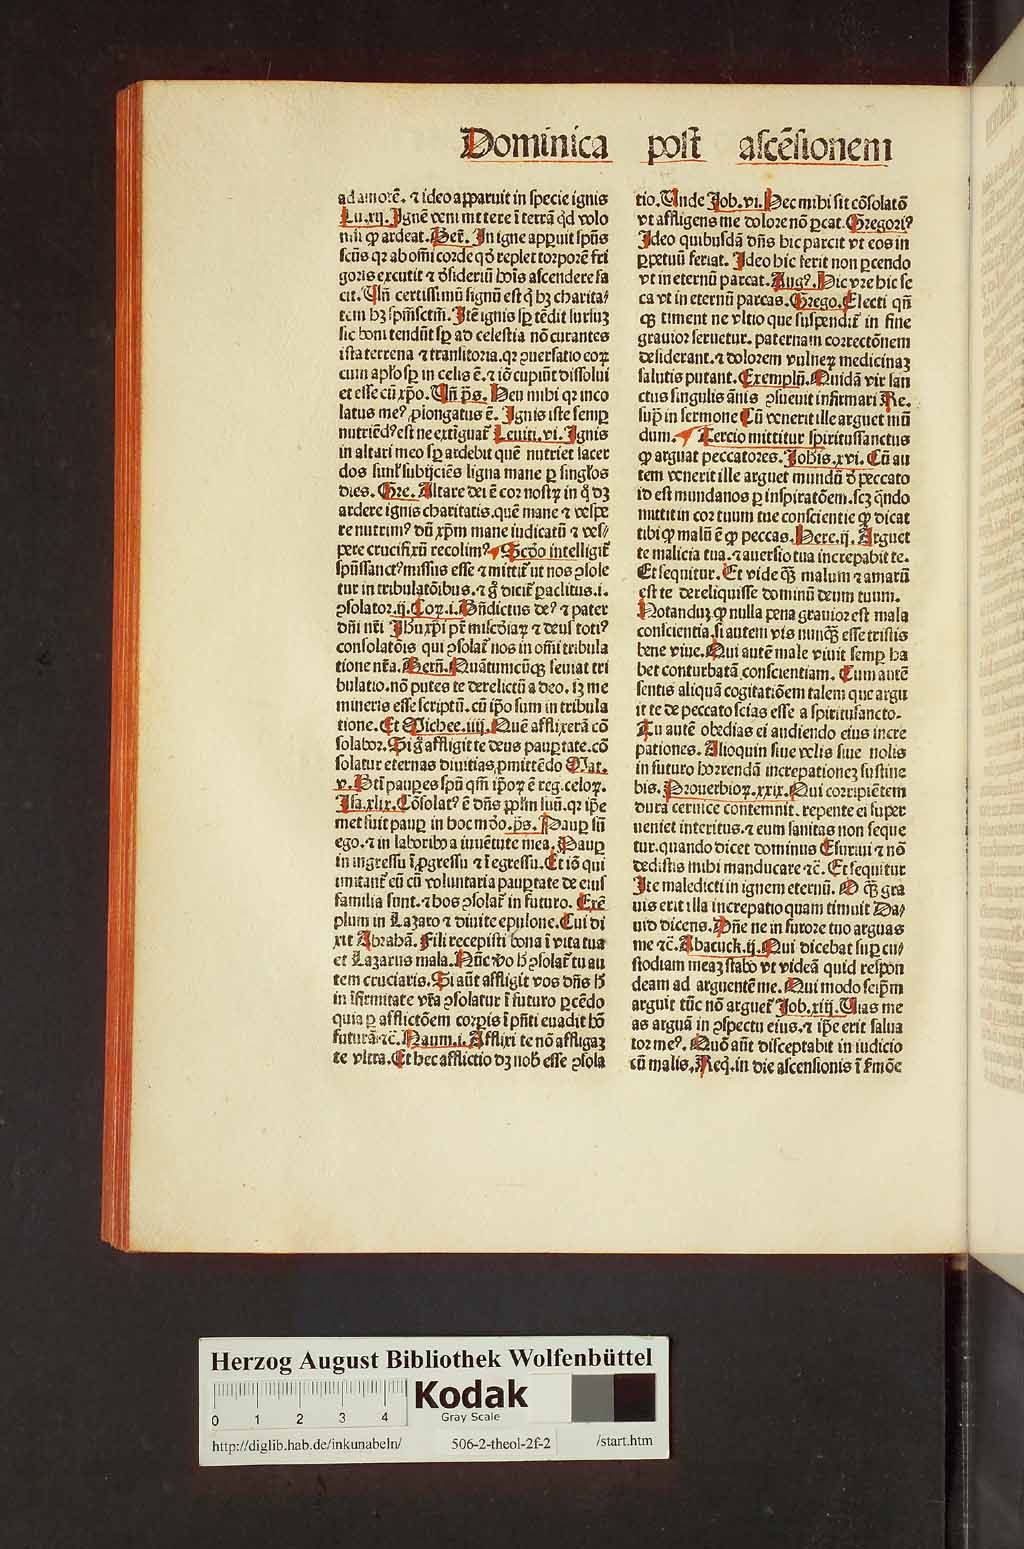 Dominica post ascēsionem
ad amorē. ⁊ ideo apparuit in specie ignis
Lu. xij. Ignē veni mittere ī terrā q̇d volo
nisi ꝙ ardeat. Ber̄. In igne appuit spūs
scūs qꝛ ab om̄i corde qd̓ replet torporē fri
goris excutit ⁊ ꝺsideriū hoīs ascendere fa
cit. Un̄ certissimū signū est ꝙ hꝫ charita⸗
tem hꝫ spm̄sctm̄. Itē ignis sp tēdit sursuꝫ
sic boni tendūt sp ad celestia nō curantes
ista terrena ⁊ transitoria. qꝛ ꝯuersatio eoꝝ
cum apl̓o sp in celis ē. ⁊ iō cupiūt dissolui
et esse cū xp̄o. Un̄ p̄s. Heu mihi qꝛ inco
latus meꝰ ꝓlongatus ē. Ignis iste semp
nutriēdꝰ est ne extīguat᷑ Leuiti. vi. Ignis
in altari meo sp ardebit quē nutriet sacer
dos surl̓ subijciēs ligna mane ꝑ singl̓os
dies. Gre. Altare dei ē cor nostꝝ in q̇ dꝫ
ardere ignis charitatis. quē mane ⁊ vespe
re nutrimꝰ dū xp̄m mane iudicatū ⁊ ves⸗
pere crucifixū recolimꝰ Scd̓o intelligit᷑
spūssanctꝰ missus esse ⁊ mittit᷑ ut nos ꝯsole
tur in tribulatōibus. ⁊ g̊ dicit᷑ paclitus. i.
ꝯsolator. ij. Coꝝ. i. Bn̄dictus deꝰ ⁊ pater
dn̄i nr̄i Ihū xp̄i pr̄ mīscdiaꝝ ⁊ deus totiꝰ
consolatōis qui ꝯsolat᷑ nos in om̄i tribula
tione nr̄a. Bern̄. Quātumcūqꝫ seuiat tri
bulatio. nō putes te derelictū a deo. sꝫ me
mineris esse scriptū. cū ip̄o sum in tribula
tione. Et Michee. iiij. Quē afflixerā cō
solabor. Si g̊ affligit te deus paupertate. cō
solatur eternas diuitias ꝓmittēdo Mat.
v. Bt̄i paupes spū qm̄ ip̄oꝝ ē reg. celoꝝ.
Isa. xlix. Cōsolatꝰ ē dn̄s ppl̓m suū. qꝛ ip̄e
met fuit paup in hoc mūdo. p̄s. Paup sū
ego. ⁊ in laboribꝰ a iuuētute mea. Paup
in ingressu ī ꝓgressu ⁊ ī egressu. Et iō qui
imitant᷑ eū cū voluntaria paupertate de eiꝰ
familia sunt. ⁊ hos ꝯsolat᷑ in futuro. Exē
plum in Lazaro ⁊ diuite epulone. Cui di
xit Abrahā. Fili recepisti bona ī vita tua
et Lazarus mala. Nūc vo hꝰ ꝯsolat᷑ tu au
tem cruciaris. Si aūt affligit vos dn̄s hꝰ
in īfirmitate vr̄a ꝯsolatur ī futuro ꝑcēdo
quia ꝑ afflictōem corꝑis ī pn̄ti euadit hō
futurā ⁊c̄. Naum. i. Afflixi te nō affligaꝫ
te vltra. Et hec afflictio dꝫ nob̓ esse ꝯsola
tio. Unde Job. vi. Hec mihi sit cōsolatō
vt affligens me dolore nō ꝑcat. Gregoriꝰ
Ideo quibusdā dn̄s hic parcit vt eos in
ꝑpetuū feriat. Ideo hic ferit non ꝑcendo
vt in eternū parcat. Augꝰ. Hic vre hic se
ca vt in eternū parcas. Grego. Electi qn̄
qꝫ timent ne vltio que suspendit᷑ in fine
grauior seruetur. paternam correctōnem
desiderant. ⁊ dolorem vulneꝝ medicinaꝫ
salutis putant. Exemplū. Quidā vir san
ctus singulis ānis ꝯsueuit infirmari Re.
sup̄ in sermone Cū venerit ille arguet mū
dum. Tercio mittitur spiritussanctus
ꝙ arguat peccatores. Johīs. xvi. Cū au
tem venerit ille arguet mundū ꝺ peccato
id est mundanos ꝑ inspiratōem. scꝫ qn̄do
mittit in cor tuum tue conscientie ꝙ dicat
tibi ꝙ malū ē ꝙ peccas. Here. ij. Arguet
te malicia tua. ⁊ auersio tua increpabit te.
Et sequitur. Et vide qꝫ malum ⁊ amarū
est te dereliquisse dominū deum tuum.
Notanduꝫ ꝙ nulla pena grauior est mala
conscientia. si autem vis nunqꝫ esse tristis
bene viue. Qui autē male viuit semp ha
bet conturbatā conscientiam. Cum autē
sentis aliquā cogitatiōem talem que argu
it te de peccato scias esse a spiritusancto.
Tu autē obedias ei audiendo eius incre
pationes. Alioquin siue velis siue nolis
in futuro horrendā increpationeꝫ sustine
bis. Prouerbioꝝ. xxix. Qui corripiētem
dura ceruice contemnit. repente ei super
ueniet interitus. ⁊ eum sanitas non seque
tur. quando dicet dominus Esuriui ⁊ nō
dedistis mihi manducare ⁊c̄. Et sequitur
Ite maledicti in ignem eternū. O qꝫ gra
uis erit illa increpatio quam timuit Da⸗
uid dicens. Dn̄e ne in furore tuo arguas
me ⁊c̄. Abacuck. ij. Qui dicebat sup cu⸗
stodiam meaꝫ stabo vt videā quid respon
deam ad arguentē me. Qui modo seip̄m
arguit tūc nō arguet᷑ Job. xiij. Uias me
as arguā in ꝯspectu eius. ⁊ ip̄e erit salua
tor meꝰ. Quō aūt disceptabit in iudicio
cū malis. Req̇. in die ascensionis ī s̓mōe
Herzog August Bibliothek Wolfenbüttel
Kodak
Gray Scale
0 1 2 3 4
http://diglib.hab.de/inkunabeln/ 506-2-theol-2f-2 /start.htm